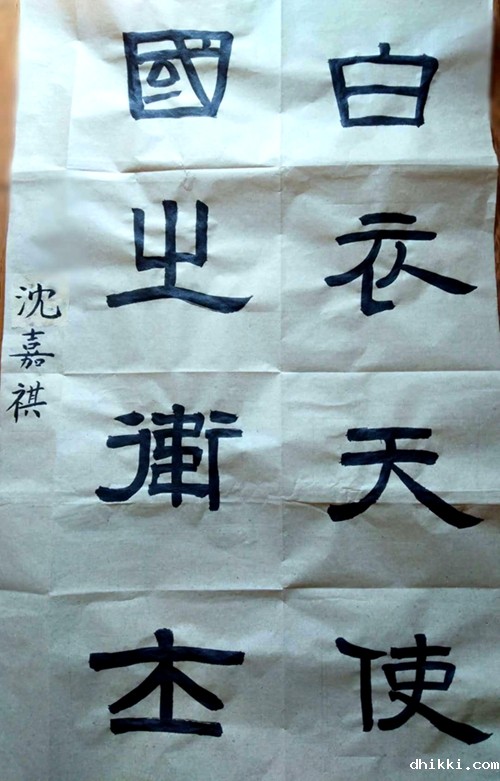 白衣天使
國之衛
沈嘉祺
dhikki.com